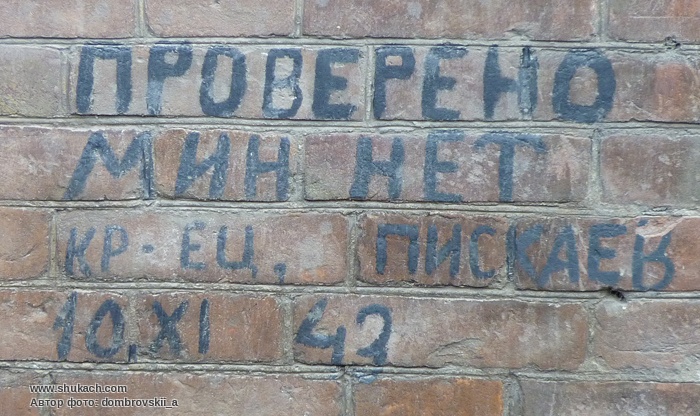 ПРОВЕРЕНО
МИН НЕТ
КР-ЕЦ, ПИСКАЕВ
10, XI 42
www.shukach.com
Автор фото- dombrovskii_a